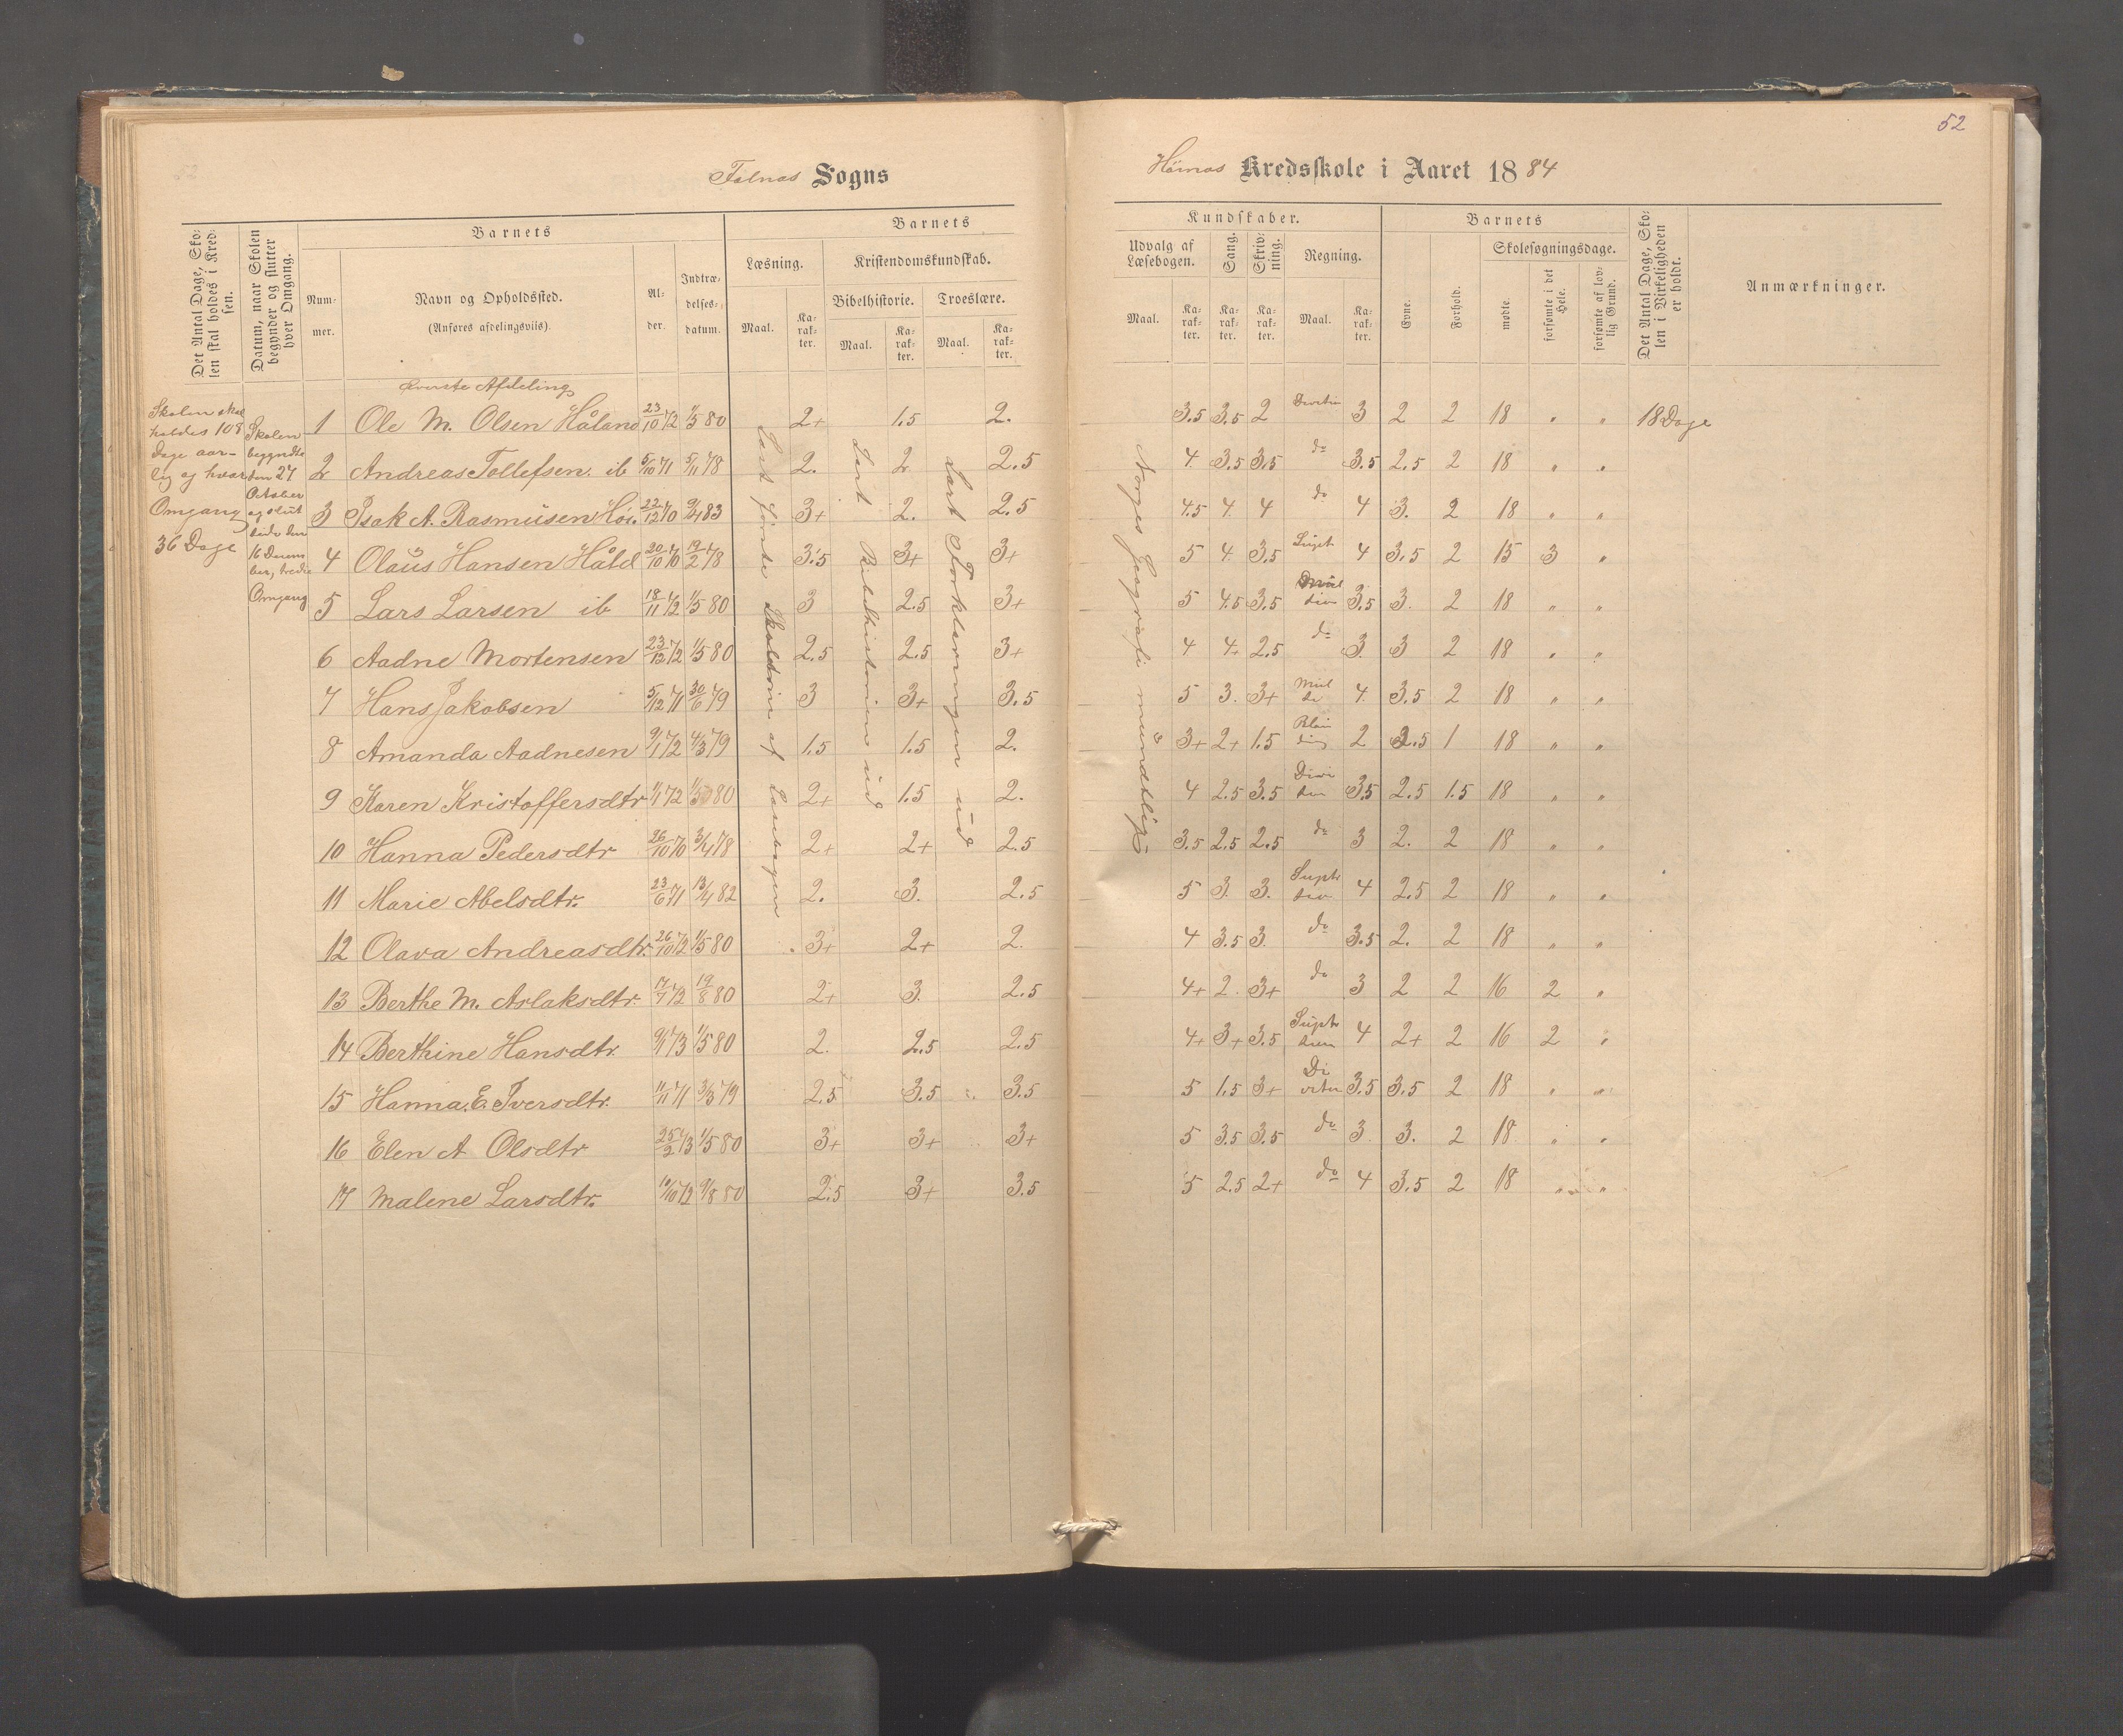 52
Falnas Sogns
Hörnas Kredsskole i Aaret 1884
Det Antal Dage, Skolen skal holdes i Kredsen.
Datum, naar Skolen begynder og slutter hver Omgang.
Barnets
Nummer.
Navn og Opholdssted.
(Anføres afdelingsviis).
Alder.
Indtrædelsesdatum.
Barnets
Læsning.
Maal.
Karakter.
Kristendomskundskab.
Bibelhistorie.
Maal.
Karakter.
Troeslære.
Maal.
Karakter.
Kundskaber.
Udvalg af Læsebogen.
Maal.
Karakter.
Sang.
Karakter.
Skrivning.
Karakter.
Regning.
Maal.
Karakter.
Barnets
Evne.
Forhold.
Skolesøgningsdage.
mødte.
forsømte i det Hele.
forsømte af lovlig Grund.
Det Antal Dage, Skolen i Virkeligheden er holdt.
Anmærkninger.
Skolen skal
holdes 108
Dage aar-
lig og hver
Omgang
36 Dage
Skolen
begyndte
den 27
October
og slut
tede den
16 Decem
ber, tredie
Omgang
Øverste Afdeling
Læst første Skoletrin af Læsebogen
Læst Bibelhistorien ud
Læst Forklaringen ud
Norges Geografi mundtlig
1 Ole M. Olsen Håland 23/10 72 1/5 80 2+ 1.5 2. 3.5 3.5 2 3 2 2 18 " " 18 Dage
2 Andreas Tollefsen ib 5/10 71 5/11 78 2. 2 2.5 4 3.5 3.5 do 3.5 2.5 2 18 " "
3 Isak A. Rasmüsen 22/12 70 9/4 83 3+ 2. 2.5 4.5 4 4 do 4 3. 2 18 " "
4 Olaüs Hansen Håld 20/10 70 19/2 78 3.5 3+ 3+ 5 4 3.5 4 3.5 2 15 3 "
5 Lars Larsen ib 18/11 72 1/5 80 3 2.5 3+ 5 4.5 3.5 3.5 3. 2 18 " "
6 Aadne Mortensen 23/12 72 1/5 80 2.5 2.5 3+ 4 4+ 2.5 do 3. 3 2 18 " "
7 Hans Jakobsen 5/12 71 30/6 79 3 3+ 3.5 5 3. 3+ 4 3.5 2 18 " "
8 Amanda Aadnesen 9/1 72 4/3 79 1.5 1.5 2. 3+ 2+ 1.5 2 2.5 1 18 " "
9 Karen Kristoffersdtr 1/1 72 1/5 80 2+ 1.5 2. 4 2.5 3.5 3.5 2.5 1.5 18 " "
10 Hanna Pedersdtr 26/10 70 3/4 78 2+ 2+ 2.5 3.5 2.5 2.5 do 3 2. 2 18 " "
11 Marie Abelsdtr. 23/6 71 13/4 82 2. 3. 2.5 5 3. 3. 4 2.5 2 18 " "
12 Olava Andreasdtr. 26/10 72 1/5 80 3+ 2+ 2. 4 3.5 3. do 3.5 2. 2 18 " "
13 Berthe M. Aslaksdtr. 17/7 72 19/8 80 2+ 3. 2.5 4+ 2. 3+ do 3 2 2 16 2 "
14 Berthine Hansdtr. 9/1 73 1/5 80 2. 2.5 2.5 4+ 3+ 3.5 4 2+ 2 16 2 "
15 Hanna E. Iversdtr. 11/11 71 3/3 79 2.5 3.5 3.5 5 1.5 3+ 3.5 3.5 2 18 " "
16 Elen A Olsdtr 25/2 73 1/5 80 3+ 3+ 3+ 5 3.5 3.5 do 3. 3. 2 18 " "
17 Malene Larsdtr. 10/10 72 9/8 80 2.5 3+ 3.5 5 2.5 2+ do 4 3.5 2 18 " "